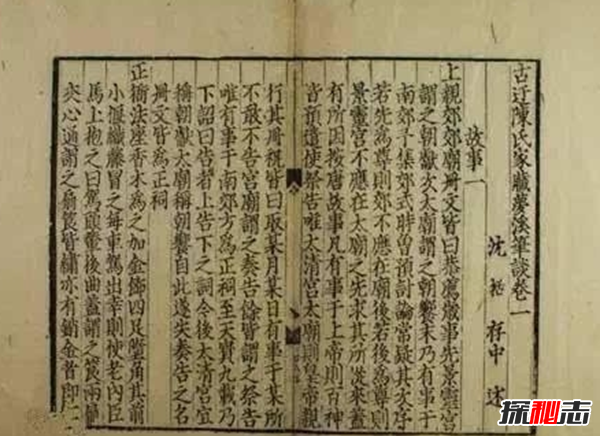 古迂陳氏家藏夢溪筆談卷一
沈括存中述
故事一
上親郊郊廟冊文皆曰恭薦歲事先景靈宮
謂之朝獻次太廟謂之朝饗末乃有事于
南郊予集郊式時曾預討論常疑其次序
若先為尊則郊不應在廟後若後為尊則
景靈宮不應在太廟之先求其所從來蓋
有所因按唐故事凡有事于上帝則百神
皆預遣使祭告唯太清宮太廟則皇帝親
行其冊祝皆曰取某月某日有事于某所
不敢不告宮廟謂之奏告餘皆謂之祭告
唯有事于南郊方為正祠至天寶九載乃
下詔曰告者上告下之詞今後太清宮宜
稱朝獻太廟稱朝饗自此遂失奏告之名
冊文皆為正祠
正衙法座香木為之加金飾四足墮角其前
小偃織藤冒之每車駕出幸則使老內臣
馬上抱之曰駕頭輦後曲蓋謂之筤兩扇
夾心通謂之扇筤皆繡亦有銷金者即
探秘志